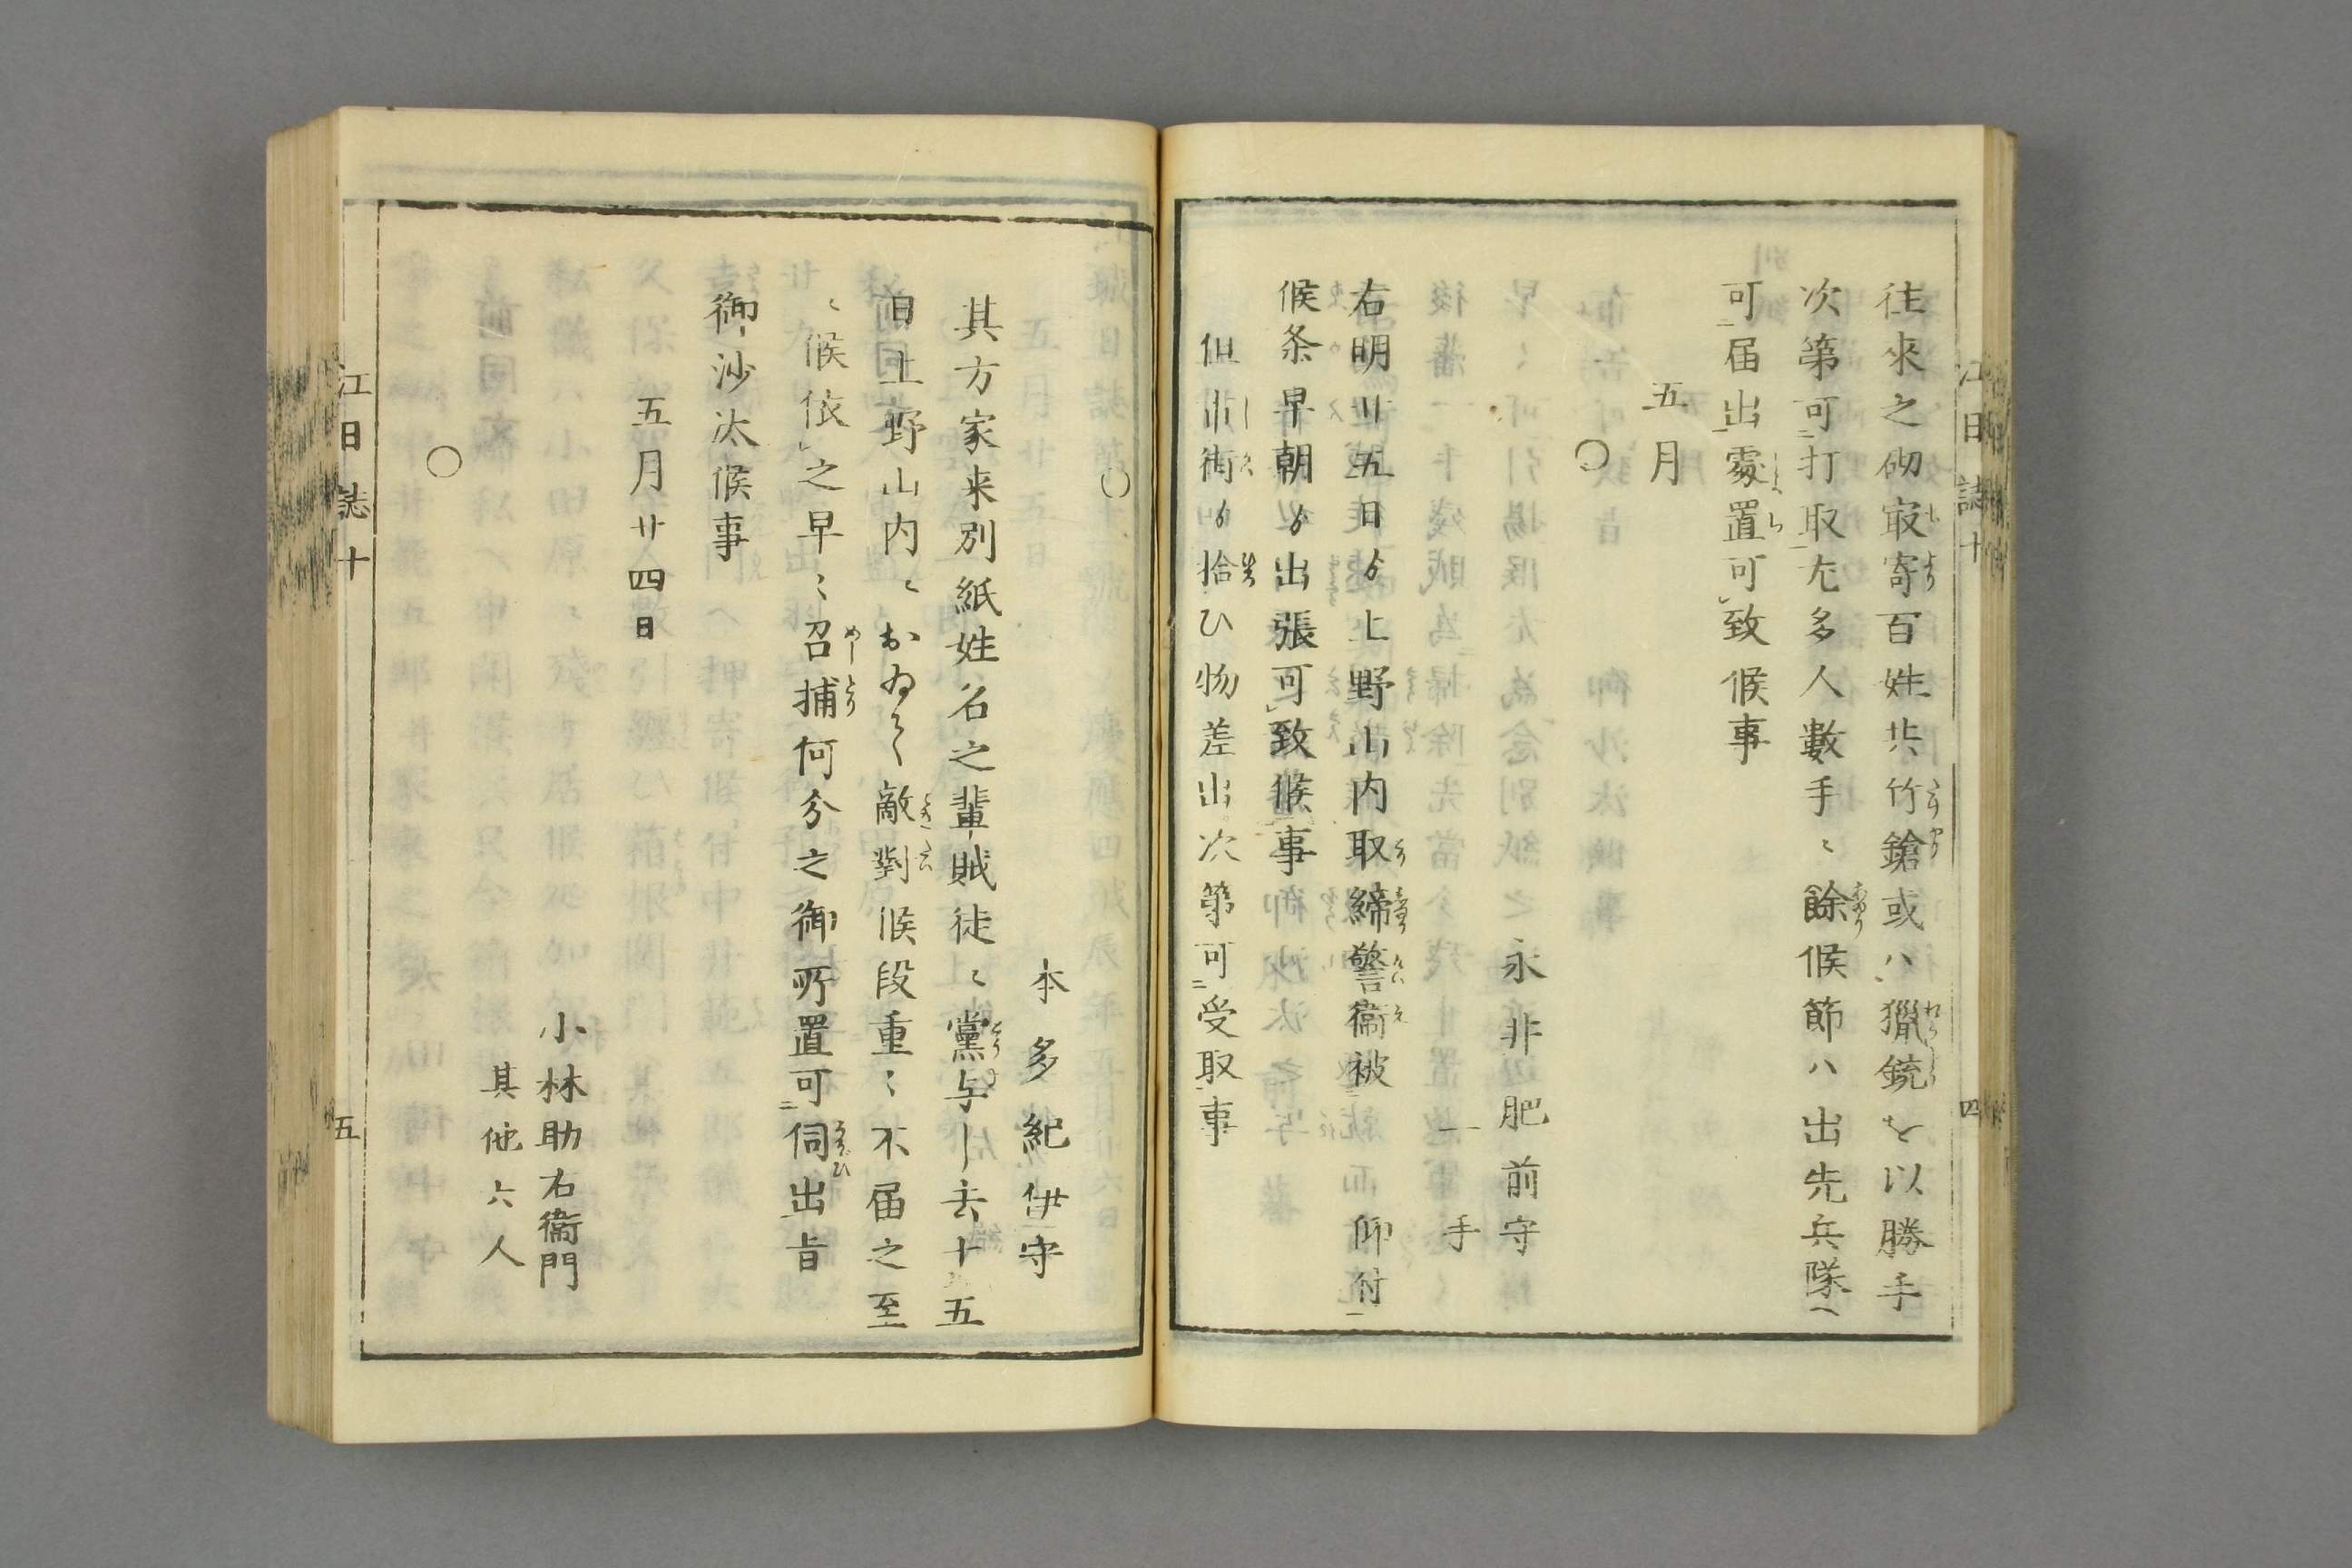 往來之砌最寄百姓共竹鎗或ハ獵銃を以勝手
次第可打取尤多人數手〻餘候節ハ出先兵隊へ
可届出處置可致候事
五月
〇
永井肥前守
一手
右明廿五日ゟ上野山内取締警衞被 仰付
候条早朝ゟ出張可致候事
但市街ゟ拾ひ物差出次第可受取事
江日誌十 四
〇
本多紀伊守
其方家来別紙姓名之輩賊徒〻黨与し去十五
日上野山内〻おゐて敵對候段重〻不届之至
〻候依之早〻召捕何分之御所置可伺出旨
御沙汰候事
五月廿四日
小林助右衞門
其他六人
〇
江日誌十 五